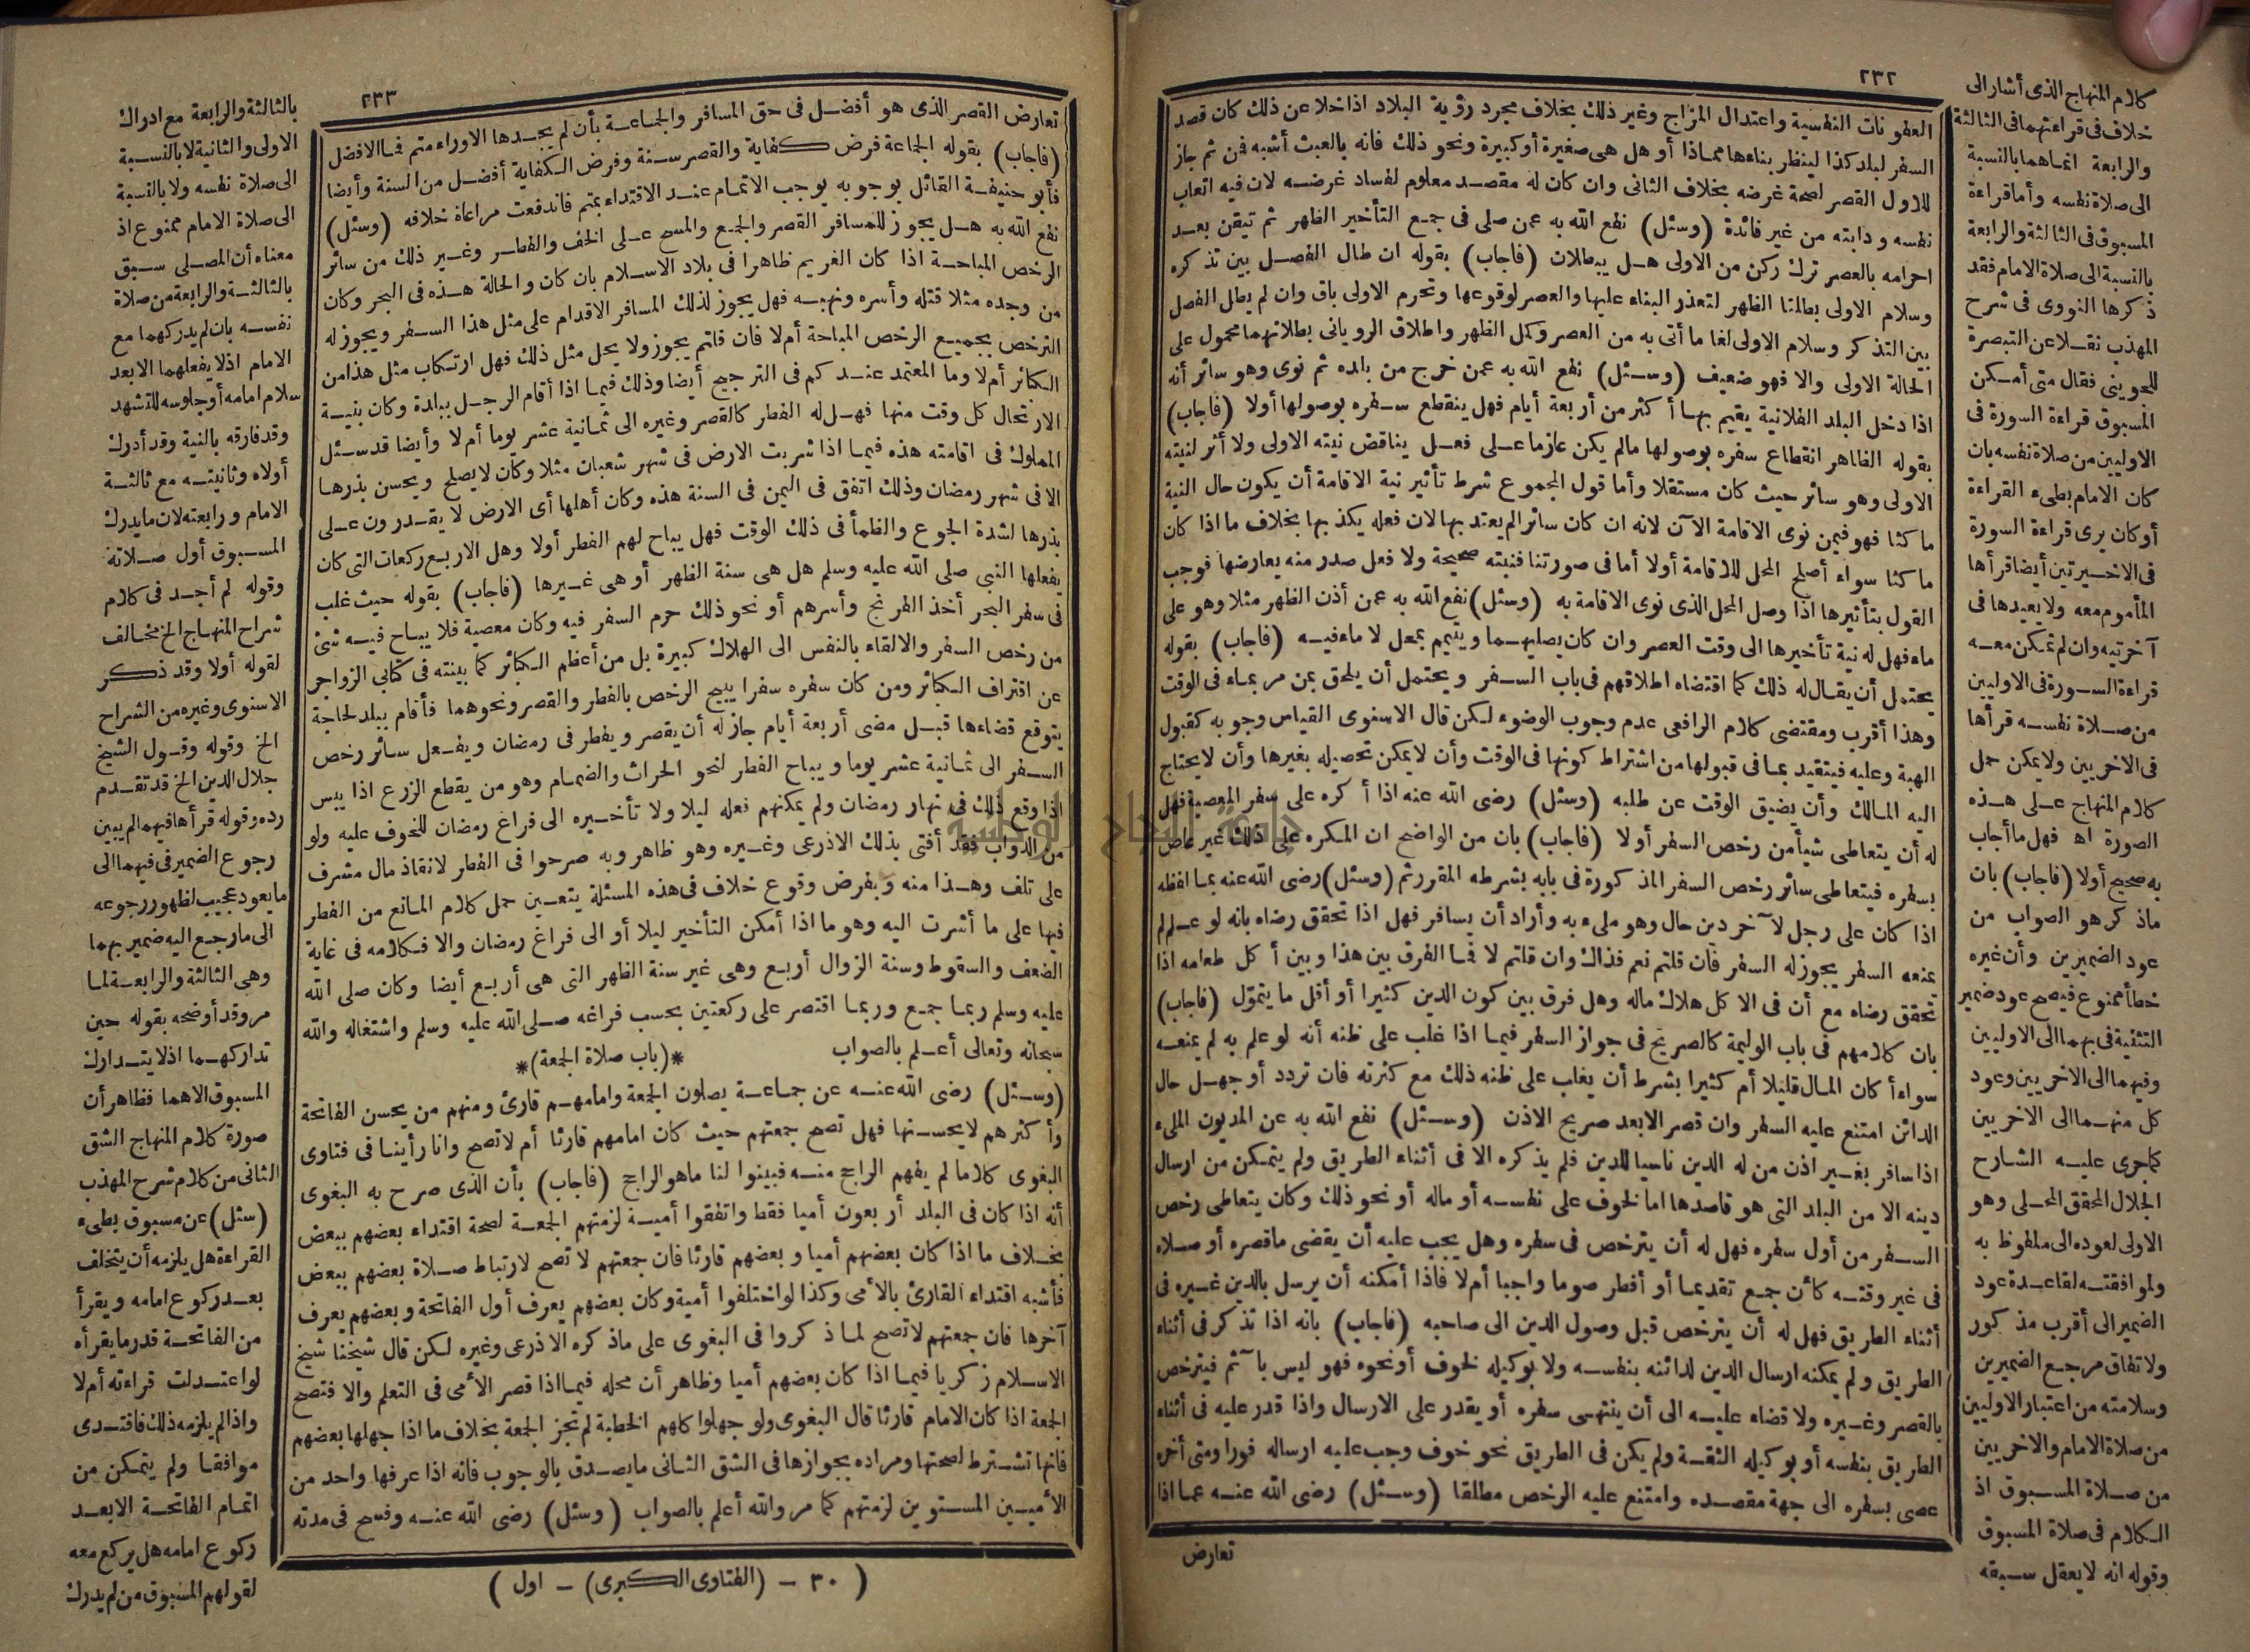 ٢٣٢
العفونات النفسية واعتدال المزاج وغير ذلك بخلاف مجرد رؤية البلاد اذا خلا عن ذلك كان قصد
السفر لبلد كذا لينظر بناءها مماذا أو هل هى صغيرة أو كبيرة ونحو ذلك فانه بالعبث أشبه فمن ثم جاز
للاول القصر لصحة غرضه بخلاف الثانى وان كان له مقصد معلوم لفساد غرضه لان فيه اتعاب
نفسه ودابته من غير فائدة (وسئل) نفع الله به عمن صلى فى جمع التأخير الظهر ثم تيقن بعد
احرامه بالعصر ترك ركن من الاولى هل يبطلان (فاجاب) بقوله ان طال الفصل بين تذكره
وسلام الاولى بطلتا الظهر لتعذر البناء عليها والعصر لوقوعها وتحرم الاولى باق وان لم يطل الفصل
بين التذكر وسلام الاولى لغا ما أتى به من العصر وكمل الظهر واطلاق الرويانى بطلانهما محمول على
الحالة الاولى والا فهو ضعيف (وسئل) نفع الله به عمن خرج من بلده ثم نوى وهو سائر أنه
اذا دخل البلد الفلانية يقيم بها أكثر من أربعة أيام فهل ينقطع سفره بوصولها أولا (فاجاب)
بقوله الظاهر انقطاع سفره بوصولها مالم يكن عازما على فعل يناقض نيته الاولى ولا أثر لنيته
الاولى وهو سائر حيث كان مستقلا وأما قول المجموع شرط تأثير نية الاقامة أن يكون حال النية
ماكثا فهو فيمن نوى الاقامة الآن لانه ان كان سائرا لم يعتد بها لان فعله يكذبها بخلاف ما اذا كان
ماكثا سواء أصلح المحل للاقامة أولا أما فى صورتنا فنيته صحيحة ولا فعل صدر منه يعارضها فوجب
القول بتأثيرها اذا وصل المحل الذى نوى الاقامة به (وسئل) نفع الله به عمن أذن الظهر مثلا وهو على
ماء فهل له نية تأخيرها الى وقت العصر وان كان يصليهما ويتيمم بمحل لا ماء فيه (فاجاب) بقوله
يحتمل أن يقال له ذلك كما اقتضاه اطلاقهم فى باب السفر ويحتمل أن يلحق بمن مر بماء فى الوقت
وهذا أقرب ومقتضى كلام الرافعى عدم وجوب الوضوء لكن قال الاسنوى القياس وجوبه كقبول
الهبة وعليه فيتقيد بما فى قبولها من اشتراط كونها فى الوقت وأن لا يمكن تحصيله بغيرها وأن لا يحتاج
اليه المالك وأن يضيق الوقت عن طلبه (وسئل) رضى الله عنه اذا أكره على سفر المعصية فهل
له أن يتعاطى شيأ من رخص السفر أولا (فاجاب) بان من الواضح ان المكره على ذلك غير عاص
بسفره فيتعاطى سائر رخص السفر المذكورة فى بابه بشرطه المقرر ثم (وسئل) رضى الله عنه بما لفظه
اذا كان على رجل لآخر دين حال وهو ملىء به وأراد أن يسافر فهل اذا تحقق رضاه بانه لو علم لم
يمنعه السفر يجوز له السفر فان قلتم نعم فذاك وان قلتم لا فما الفرق بين هذا وبين أكل طعامه اذا
تحقق رضاه مع أن فى الاكل هلاك ماله وهل فرق بين كون الدين كثيرا أو أقل ما يتمول (فاجاب)
بان كلامهم فى باب الوليمة كالصريح فى جواز السفر فيما اذا غلب على ظنه أنه لو علم به لم يمنعه
سواء أكان المال قليلا أم كثيرا بشرط أن يغلب على ظنه ذلك مع كثرته فان تردد أو جهل حال
الدائن امتنع عليه السفر وان قصر الابعد صريح الاذن (وسئل) نفع الله به عن المديون الملىء
اذا سافر بغير اذن من له الدين ناسيا للدين فلم يذكره الا فى أثناء الطريق ولم يتمكن من ارسال
دينه الا من البلد التى هو قاصدها اما لخوف على نفسه أو ماله أو نحو ذلك وكان يتعاطى رخص
السفر من أول سفره فهل له أن يترخص فى سفره وهل يجب عليه أن يقضى ما قصره أو صلاه
فى غير وقته كأن جمع تقديما أو أفطر صوما واجبا أم لا فاذا أمكنه أن يرسل بالدين غيره فى
أثناء الطريق فهل له أن يترخص قبل وصول الدين الى صاحبه (فاجاب) بانه اذا تذكر فى أثناء
الطريق ولم يمكنه ارسال الدين لدائنه بنفسه ولا بوكيله لخوف أو نحوه فهو ليس بآثم فيترخص
بالقصر وغيره ولا قضاء عليه الى أن ينتهى سفره أو يقدر على الارسال واذا قدر عليه فى أثناء
الطريق بنفسه أو بوكيله الثقة ولم يكن فى الطريق نحو خوف وجب عليه ارساله فورا ومتى أخره
عصى بسفره الى جهة مقصده وامتنع عليه الرخص مطلقا (وسئل) رضى الله عنه عما اذا
تعارض
كلام المنهاج الذى أشار الى
خلاف فى قراءتهما فى الثالثة
والرابعة انما هما بالنسبة
الى صلاة نفسه وأما قراءة
المسبوق فى الثالثة والرابعة
بالنسبة الى صلاة الامام فقد
ذكرها النووى فى شرح
المهذب نقلا عن التبصرة
للجوينى فقال متى أمكن
المسبوق قراءة السورة فى
الاوليين من صلاة نفسه بان
كان الامام بطىء القراءة
أو كان يرى قراءة السورة
فى الاخيرتين أيضا قرأها
المأموم معه ولا يعيدها فى
آخرتيه وان لم تمكن معه
قراءة السورة فى الاوليين
من صلاة نفسه قرأها
فى الاخريين ولا يمكن حمل
كلام المنهاج على هذه
الصورة اه فهل ما أجاب
به صحيح أولا (فاجاب) بان
ماذكر هو الصواب من
عود الضميرين وأن غيره
خطأ ممنوع فيصح عود ضمير
التثنية فى بهما الى الاوليين
وفيهما الى الاخريين وعود
كل منهما الى الاخريين
كما جرى عليه الشارح
الجلال المحقق المحلى وهو
الاولى لعوده الى ملفوظ به
ولموافقته لقاعدة عود
الضمير الى أقرب مذكور
ولاتفاق مرجع الضميرين
وسلامته من اعتبار الاوليين
من صلاة الامام والاخريين
من صلاة المسبوق اذ
الكلام فى صلاة المسبوق
وقوله انه لا يعقل سبقه
٢٣٣
تعارض القصر الذى هو أفضل فى حق المسافر والجماعة بأن لم يجدها الا وراء متم فما الافضل
(فاجاب) بقوله الجماعة فرض كفاية والقصر سنة وفرض الكفاية أفضل من السنة وأيضا
فأبو حنيفة القائل بوجوبه يوجب الاتمام عند الاقتداء بمتم فاندفعت مراعاة خلافه (وسئل)
نفع الله به هل يجوز للمسافر القصر والجمع والمسح على الخف والفطر وغير ذلك من سائر
الرخص المباحة اذا كان الغريم ظاهرا فى بلاد الاسلام بان كان والحالة هذه فى البحر وكان
من وجده مثلا قتله وأسره ونهبه فهل يجوز لذلك المسافر الاقدام على مثل هذا السفر ويجوز له
الترخص بجميع الرخص المباحة أم لا فان قلتم يجوز ولا يحل مثل ذلك فهل ارتكاب مثل هذا من
الكبائر أم لا وما المعتمد عندكم فى الترجيح أيضا وذلك فيما اذا أقام الرجل ببلدة وكان بنية
الارتحال كل وقت منها فهل له الفطر كالقصر وغيره الى ثمانية عشر يوما أم لا وأيضا قد سئل
المملوك فى اقامته هذه فيما اذا شربت الارض فى شهر شعبان مثلا وكان لا يصلح ويحسن بذرها
الا فى شهر رمضان وذلك اتفق فى اليمن فى السنة هذه وكان أهلها أى الارض لا يقدرون على
بذرها لشدة الجوع والظمأ فى ذلك الوقت فهل يباح لهم الفطر أولا وهل الاربع ركعات التى كان
يفعلها النبى صلى الله عليه وسلم هل هى سنة الظهر أو هى غيرها (فاجاب) بقوله حيث غلب
فى سفر البحر أخذ الفرنج وأسرهم أو نحو ذلك حرم السفر فيه وكان معصية فلا يباح فيه شئ
من رخص السفر والالقاء بالنفس الى الهلاك كبيرة بل من أعظم الكبائر كما بينته فى كتابى الزواجر
عن اقتراف الكبائر ومن كان سفره سفرا يبيح الرخص بالفطر والقصر ونحوهما فأقام ببلد لحاجة
يتوقع قضاءها قبل مضى أربعة أيام جاز له أن يقصر ويفطر فى رمضان ويفعل سائر رخص
السفر الى ثمانية عشر يوما ويباح الفطر لنحو الحراث والضمام وهو من يقطع الزرع اذا يبس
اذا وقع ذلك فى نهار رمضان ولم يمكنهم فعله ليلا ولا تأخيره الى فراغ رمضان للخوف عليه ولو
من الدواب فقد أفتى بذلك الاذرعى وغيره وهو ظاهر وبه صرحوا فى الفطر لانقاذ مال مشرف
على تلف وهذا منه وبفرض وقوع خلاف فى هذه المسئلة يتعين حمل كلام المانع من الفطر
فيها على ما أشرت اليه وهو ما اذا أمكن التأخير ليلا أو الى فراغ رمضان والا فكلامه فى غاية
الضعف والسقوط وسنة الزوال أربع وهى غير سنة الظهر التى هى أربع أيضا وكان صلى الله
عليه وسلم ربما جمع وربما اقتصر على ركعتين بحسب فراغه صلى الله عليه وسلم واشتغاله والله
سبحانه وتعالى أعلم بالصواب *(باب صلاة الجمعة)*
(وسئل) رضى الله عنه عن جماعة يصلون الجمعة وامامهم قارئ ومنهم من يحسن الفاتحة
وأكثرهم لا يحسنها فهل تصح جمعتهم حيث كان امامهم قارئا أم لا تصح وانا رأينا فى فتاوى
البغوى كلاما لم يفهم الراجح منه فبينوا لنا ماهو الراجح (فاجاب) بأن الذى صرح به البغوى
أنه اذا كان فى البلد أربعون أميا فقط واتفقوا أمية لزمتهم الجمعة لصحة اقتداء بعضهم ببعض
بخلاف ما اذا كان بعضهم أميا وبعضهم قارئا فان جمعتهم لا تصح لارتباط صلاة بعضهم ببعض
فأشبه اقتداء القارئ بالأمى وكذا لو اختلفوا أمية وكان بعضهم يعرف أول الفاتحة وبعضهم يعرف
آخرها فان جمعتهم لا تصح لما ذكروا فى البغوى على ماذكره الاذرعى وغيره لكن قال شيخنا شيخ
الاسلام زكريا فيما اذا كان بعضهم أميا وظاهر أن محله فيما اذا قصر الأمى فى التعلم والا فتصح
الجمعة اذا كان الامام قارئا قال البغوى ولو جهلوا كلهم الخطبة لم تجز الجمعة بخلاف ما اذا جهلها بعضهم
فانها تشترط لصحتها ومراده بجوازها فى الشق الثانى ما يصدق بالوجوب فانه اذا عرفها واحد من
الأميين المستوين لزمتهم كما مر والله أعلم بالصواب (وسئل) رضى الله عنه وفسح فى مدته
(٣٠ - (الفتاوى الكبرى) - اول)
بالثالثة والرابعة مع ادراك
الاولى والثانية لا بالنسبة
الى صلاة نفسه ولا بالنسبة
الى صلاة الامام ممنوع اذ
معناه أن المصلى سبق
بالثالثة والرابعة من صلاة
نفسه بان لم يدركهما مع
الامام اذ لا يفعلهما الا بعد
سلام امامه أو جلوسه للتشهد
وقد فارقه بالنية وقد أدرك
أولاه وثانيته مع ثالثة
الامام ورابعته لان ما يدرك
المسبوق أول صلاته
وقوله لم أجد فى كلام
شراح المنهاج الخ مخالف
لقوله أولا وقد ذكر
الاسنوى وغيره من الشراح
الخ وقوله وقول الشيخ
جلال الدين الخ قد تقدم
رده وقوله قرأها فيهما لم يبين
رجوع الضمير فى فيهما الى
ما يعود عجيب لظهور رجوعه
الى ما رجع اليه ضمير بهما
وهى الثالثة والرابعة لما
مر وقد أوضحه بقوله حين
تداركهما اذ لا يتدارك
المسبوق الا هما فظاهر أن
صورة كلام المنهاج الشق
الثانى من كلام شرح المهذب
(سئل) عن مسبوق بطىء
القراءة هل يلزمه أن يتخلف
بعد ركوع امامه ويقرأ
من الفاتحة قدر ما يقرأه
لو اعتدلت قراءته أم لا
واذا لم يلزمه ذلك فاقتدى
موافقا ولم يتمكن من
اتمام الفاتحة الا بعد
ركوع امامه هل يركع معه
لقولهم المسبوق من لم يدرك